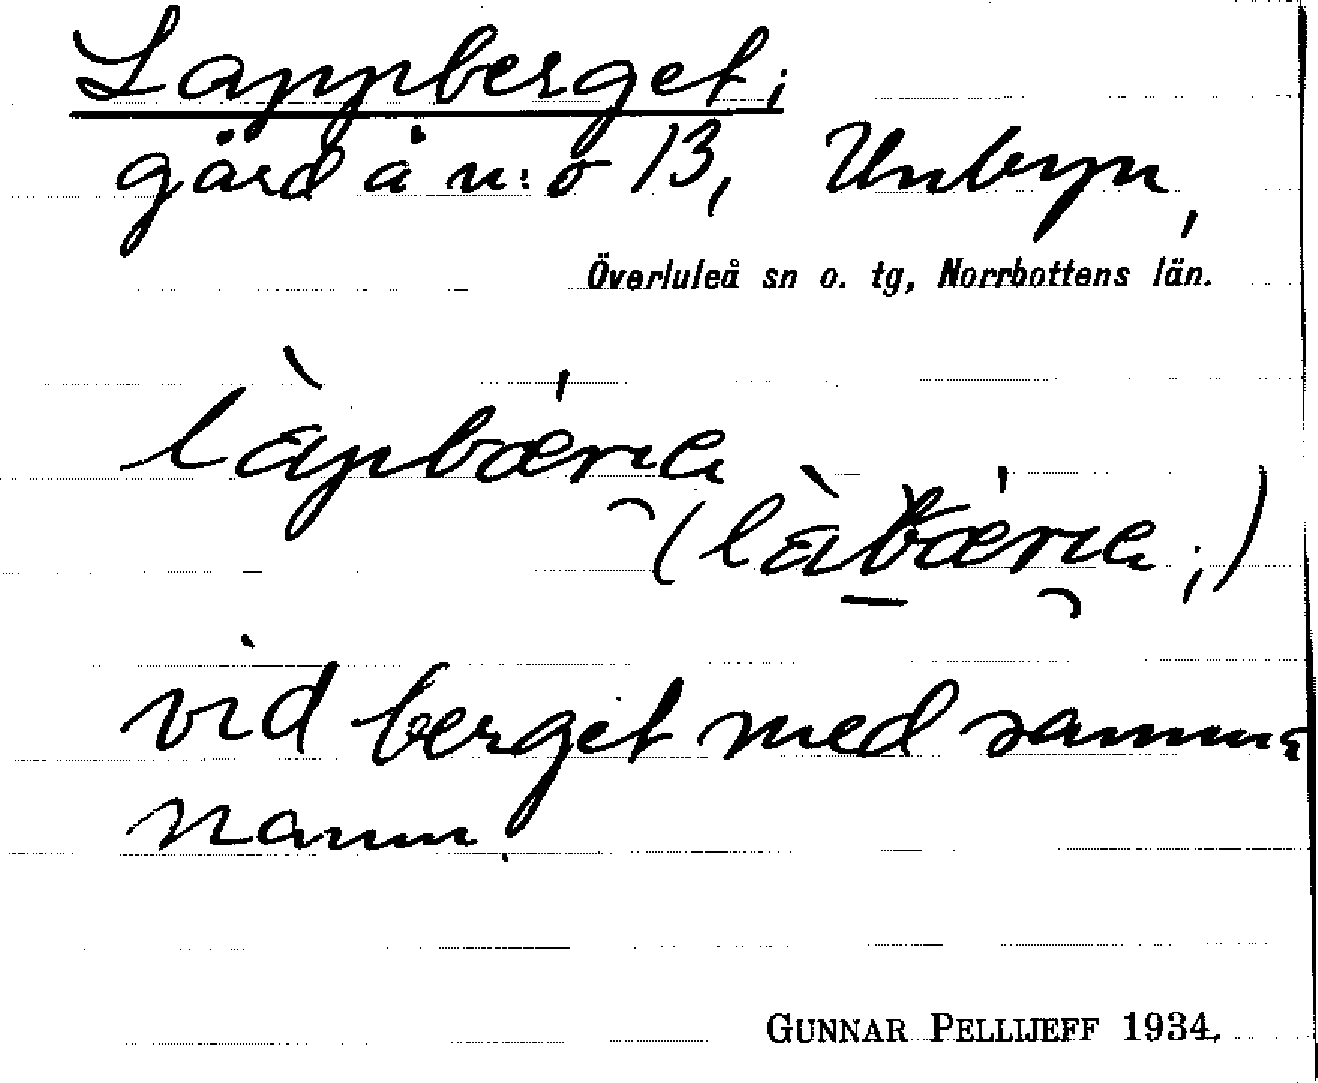 Lappberget;
gård å n:o 13, Unbyn,
Överluleå sn o. tg, Norrbottens län.
vid berget med samma
namn.
GUNNAR PELLIJEFF 1934.